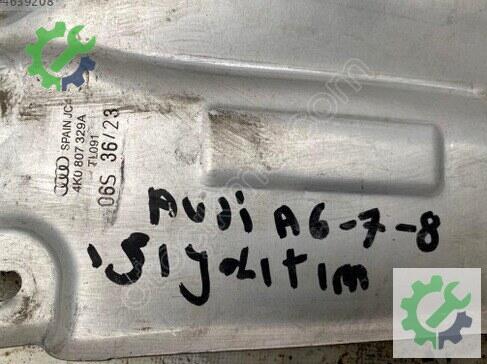 4639208
SPAIN JC
4K0 807 329A
TL091
06S 36/23
Audi A6-7-8